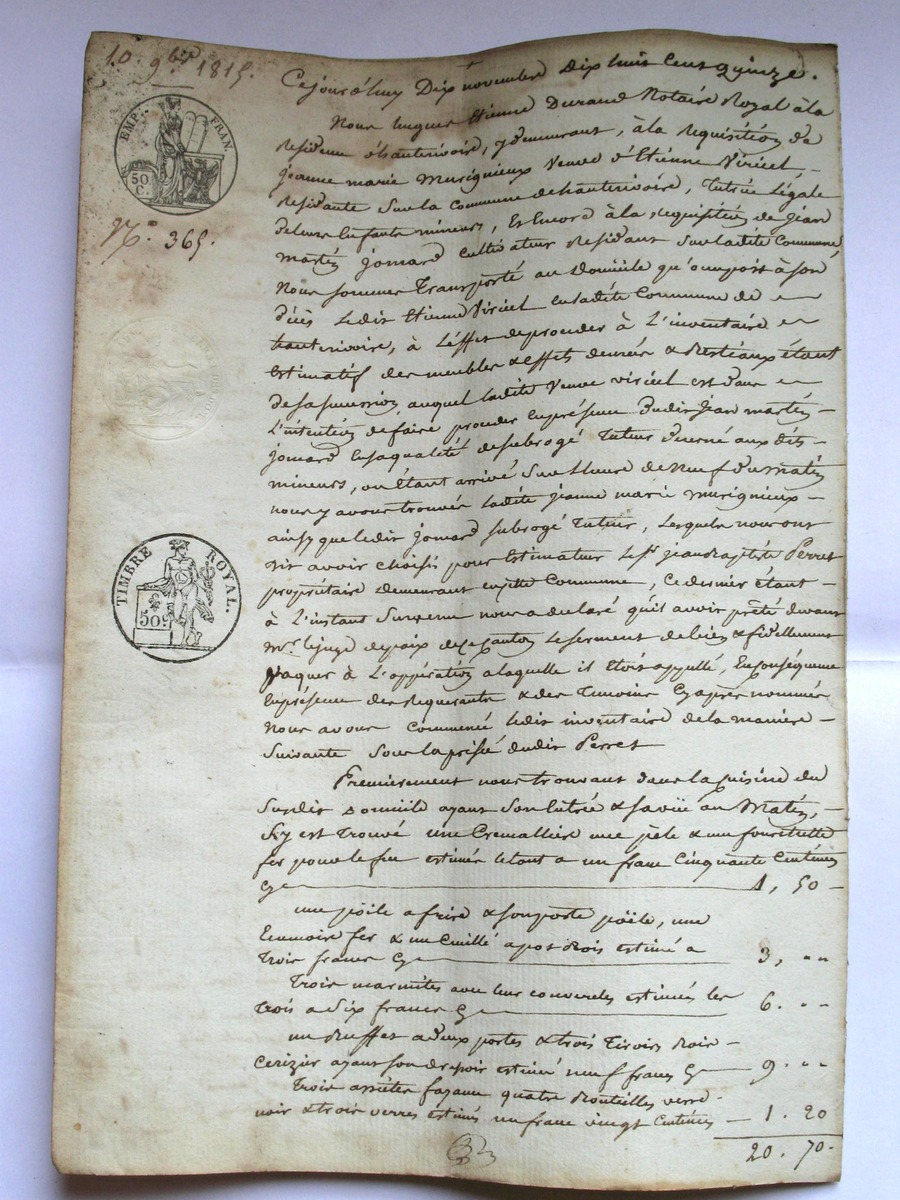 10. 9bre 1815.
EMP. FRAN.
50 C.
No. 365.
TIMBRE ROYAL.
50 C
Cejourd'huy Dix novembre Dix huit Cent quinze.
Nous hugues Etienne Durand Notaire Royal à la
Residence d'hauterivoire, y demeurant, à la Requisition de
jeanne marie Murignieux Veuve d'Etienne Viriéel,
Residante Sur la Commune de hauterivoire, Tutrice légale
de leurs Enfants mineurs, Et Encord à la Requisition de Jean
martin Jomard Cultivateur Residant Sur ladite Commune,
Nous sommes Transporté au Domicile qu'occupoit à son
décès Ledit Etienne Viriéel en ladite Commune de
hauterivoire, à l'éffet de proceder à L'inventaire
Estimatif des meubles & effets denrées & Bestiaux étant
de sa succession, auquel ladite Veuve viriéel est dans
L'intention de faire proceder En présence Dudit Jean martin
Jomard En sa qualité de subrogé Tuteur decerné aux dits
mineurs, ou étant arrivé Sur lheure de Neuf du Matin
nous y avons trouvée Ladite jeanne marie Murignieux
ainsy que ledit Jomard subrogé Tuteur, Lesquels nous ont
dit avoir choisis pour Estimateur Le Sr. jean baptiste Perret
propriétaire demeurant en cette Commune, Ce dernier étant
à L'instant Survenu nous a declaré qu'il avoir prêté devant
Mr. le juge de paix de ce Canton Le serment de bien & fidellement
Vaquer à L'oppération a laquelle il Etoit appellé, En conséquence
En présence des Requerants & des Temoins Cy après nommés
Nous avons Commencé ledit inventaire de la maniere
Suivante Sous la prisée dudit Perret
Premierement nous trouvant dans la Cuisine du
Susdit Domicile ayant Son Entrée & sa vüe au Matin,
S'y est Trouvé une Cremalliere une pèle & une fourchette
fer pour le feu estimés le tout a un franc Cinquante Centimes
Cy 1, 50
une pöile a frire & son porte pöële, une
Bassinoire fer & un Cuillé a pot Bois estimé a
Trois francs Cy 3, " "
Trois marmites avec leur couvercles estimées les
Trois a Six francs Cy 6. " "
un Buffet a deux portes & trois Tiroirs Bois
Cerizier ayant son drepoir estimé neuf francs Cy 9. " "
Trois assiettes fayance quatre Bouteilles verre
noir & trois verres estimés un franc vingt Centimes 1. 20
20. 70